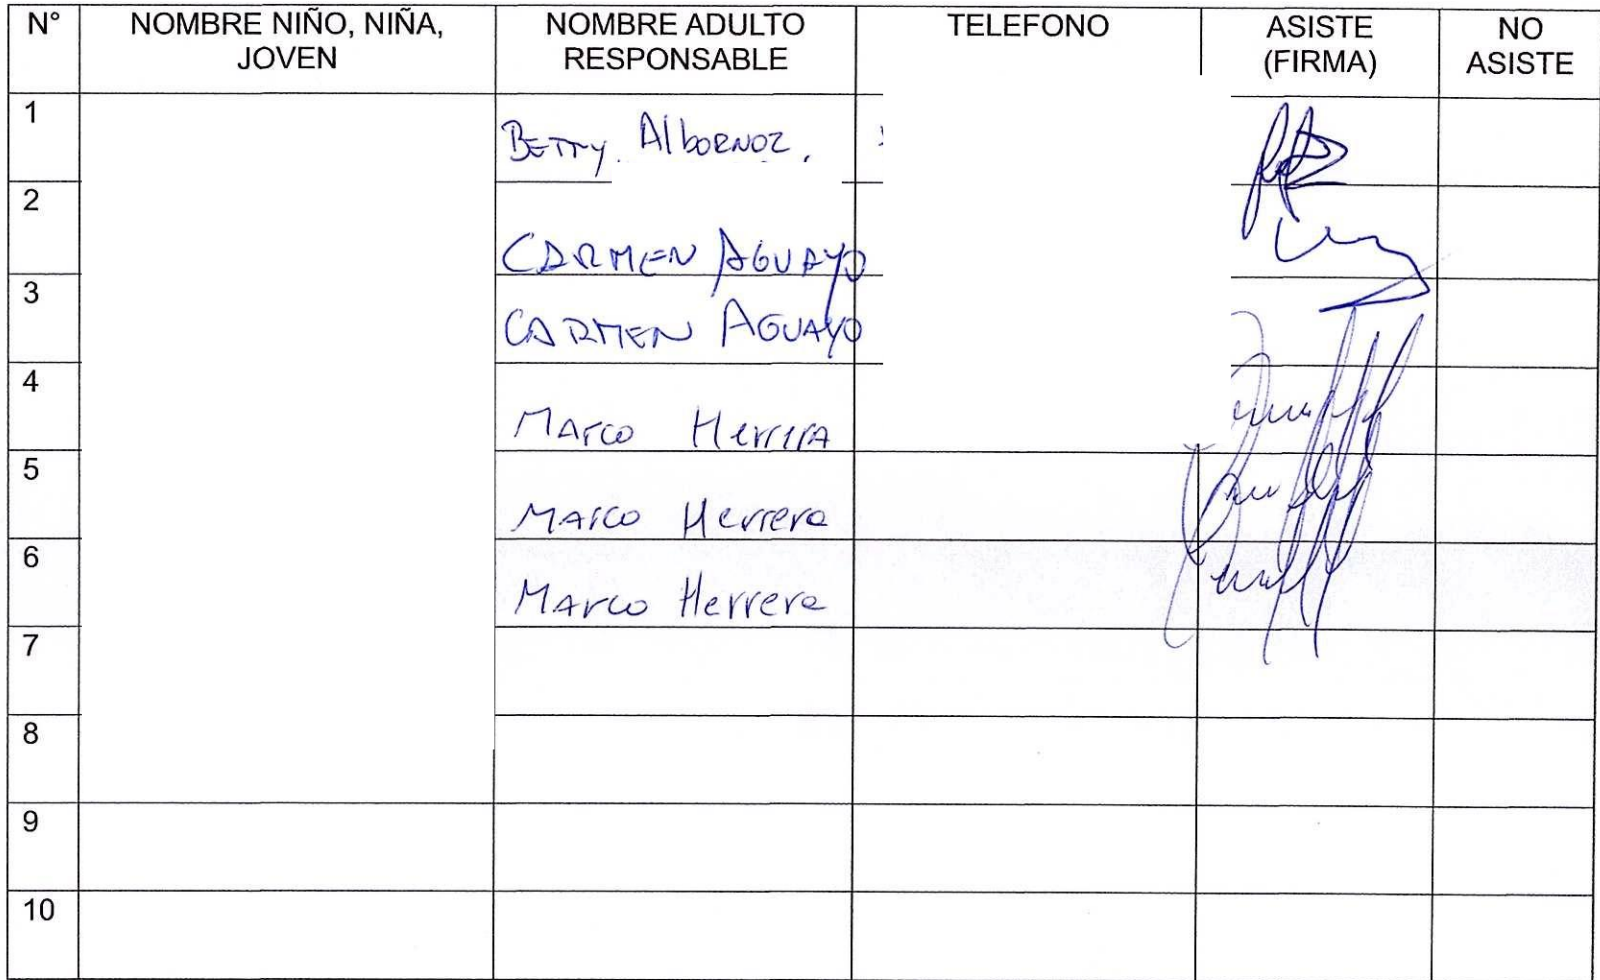 N° NOMBRE NIÑO, NIÑA, JOVEN NOMBRE ADULTO RESPONSABLE TELEFONO ASISTE (FIRMA) NO ASISTE
1 BETTY. AlboRNOZ.
2 CARMEN AGUAYO
3 CARMEN AGUAYO
4 MArco HerrerA
5 MArco Herrera
6 MArco Herrera
7
8
9
10